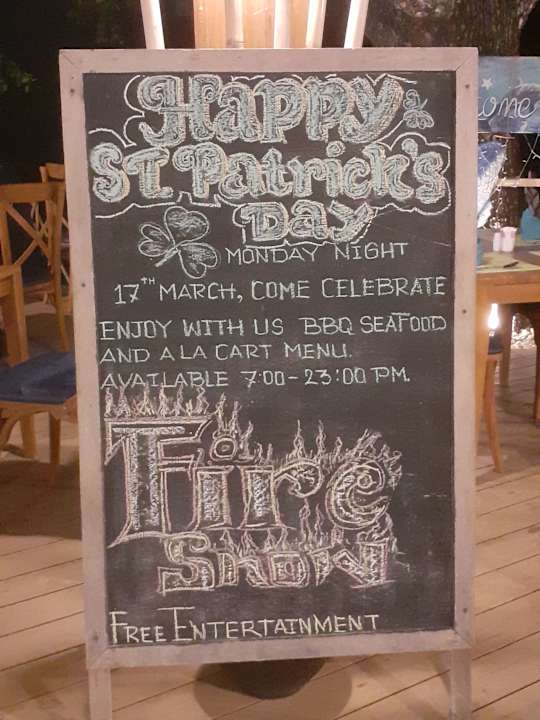 Happy
ST. Patrick's
DAY
MONDAY NIGHT
17TH MARCH, COME CELEBRATE
ENJOY WITH US BBQ SEAFOOD
AND A LA CART MENU.
AVAILABLE 7:00 - 23:00 PM.
Fire
SHOW
FREE ENTERTAINMENT